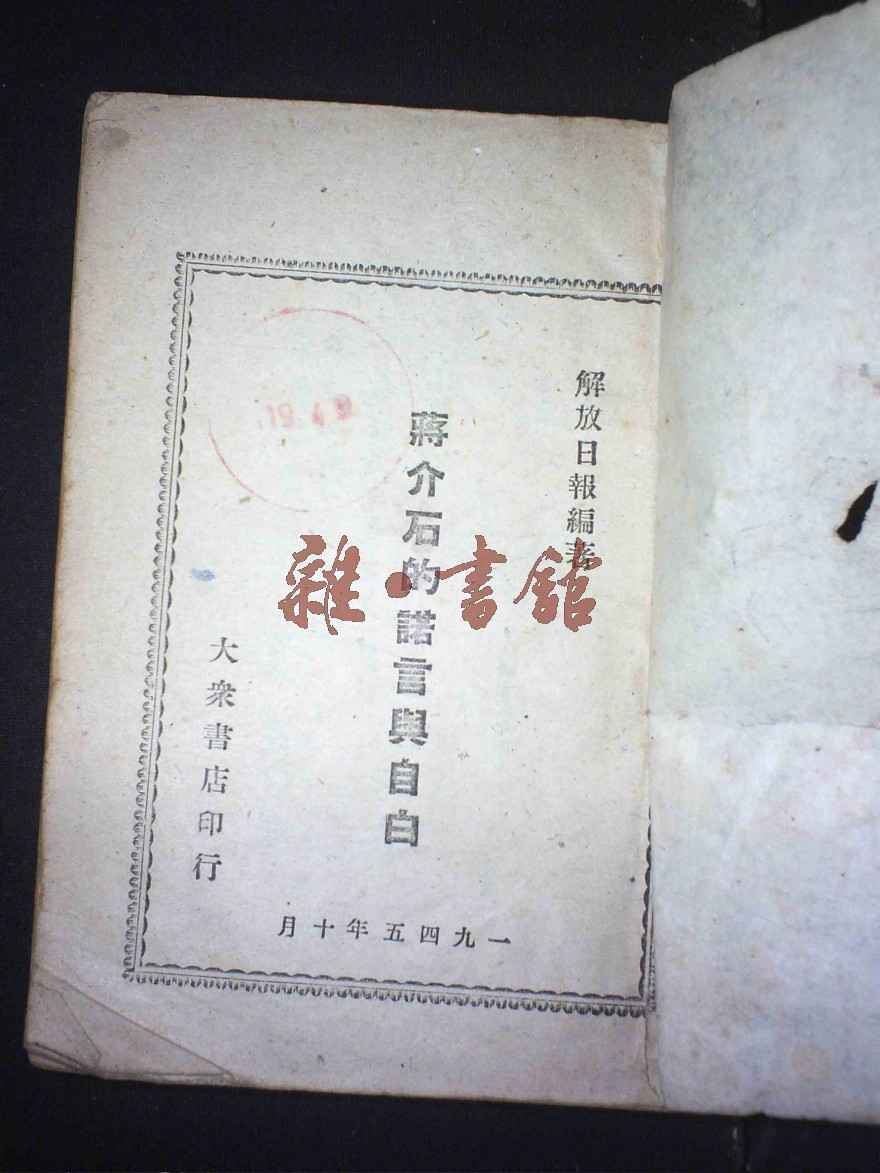 解放日報編著
蔣介石的諾言與自白
大衆書店印行
一九四五年十月
雜·書館
19.4.9